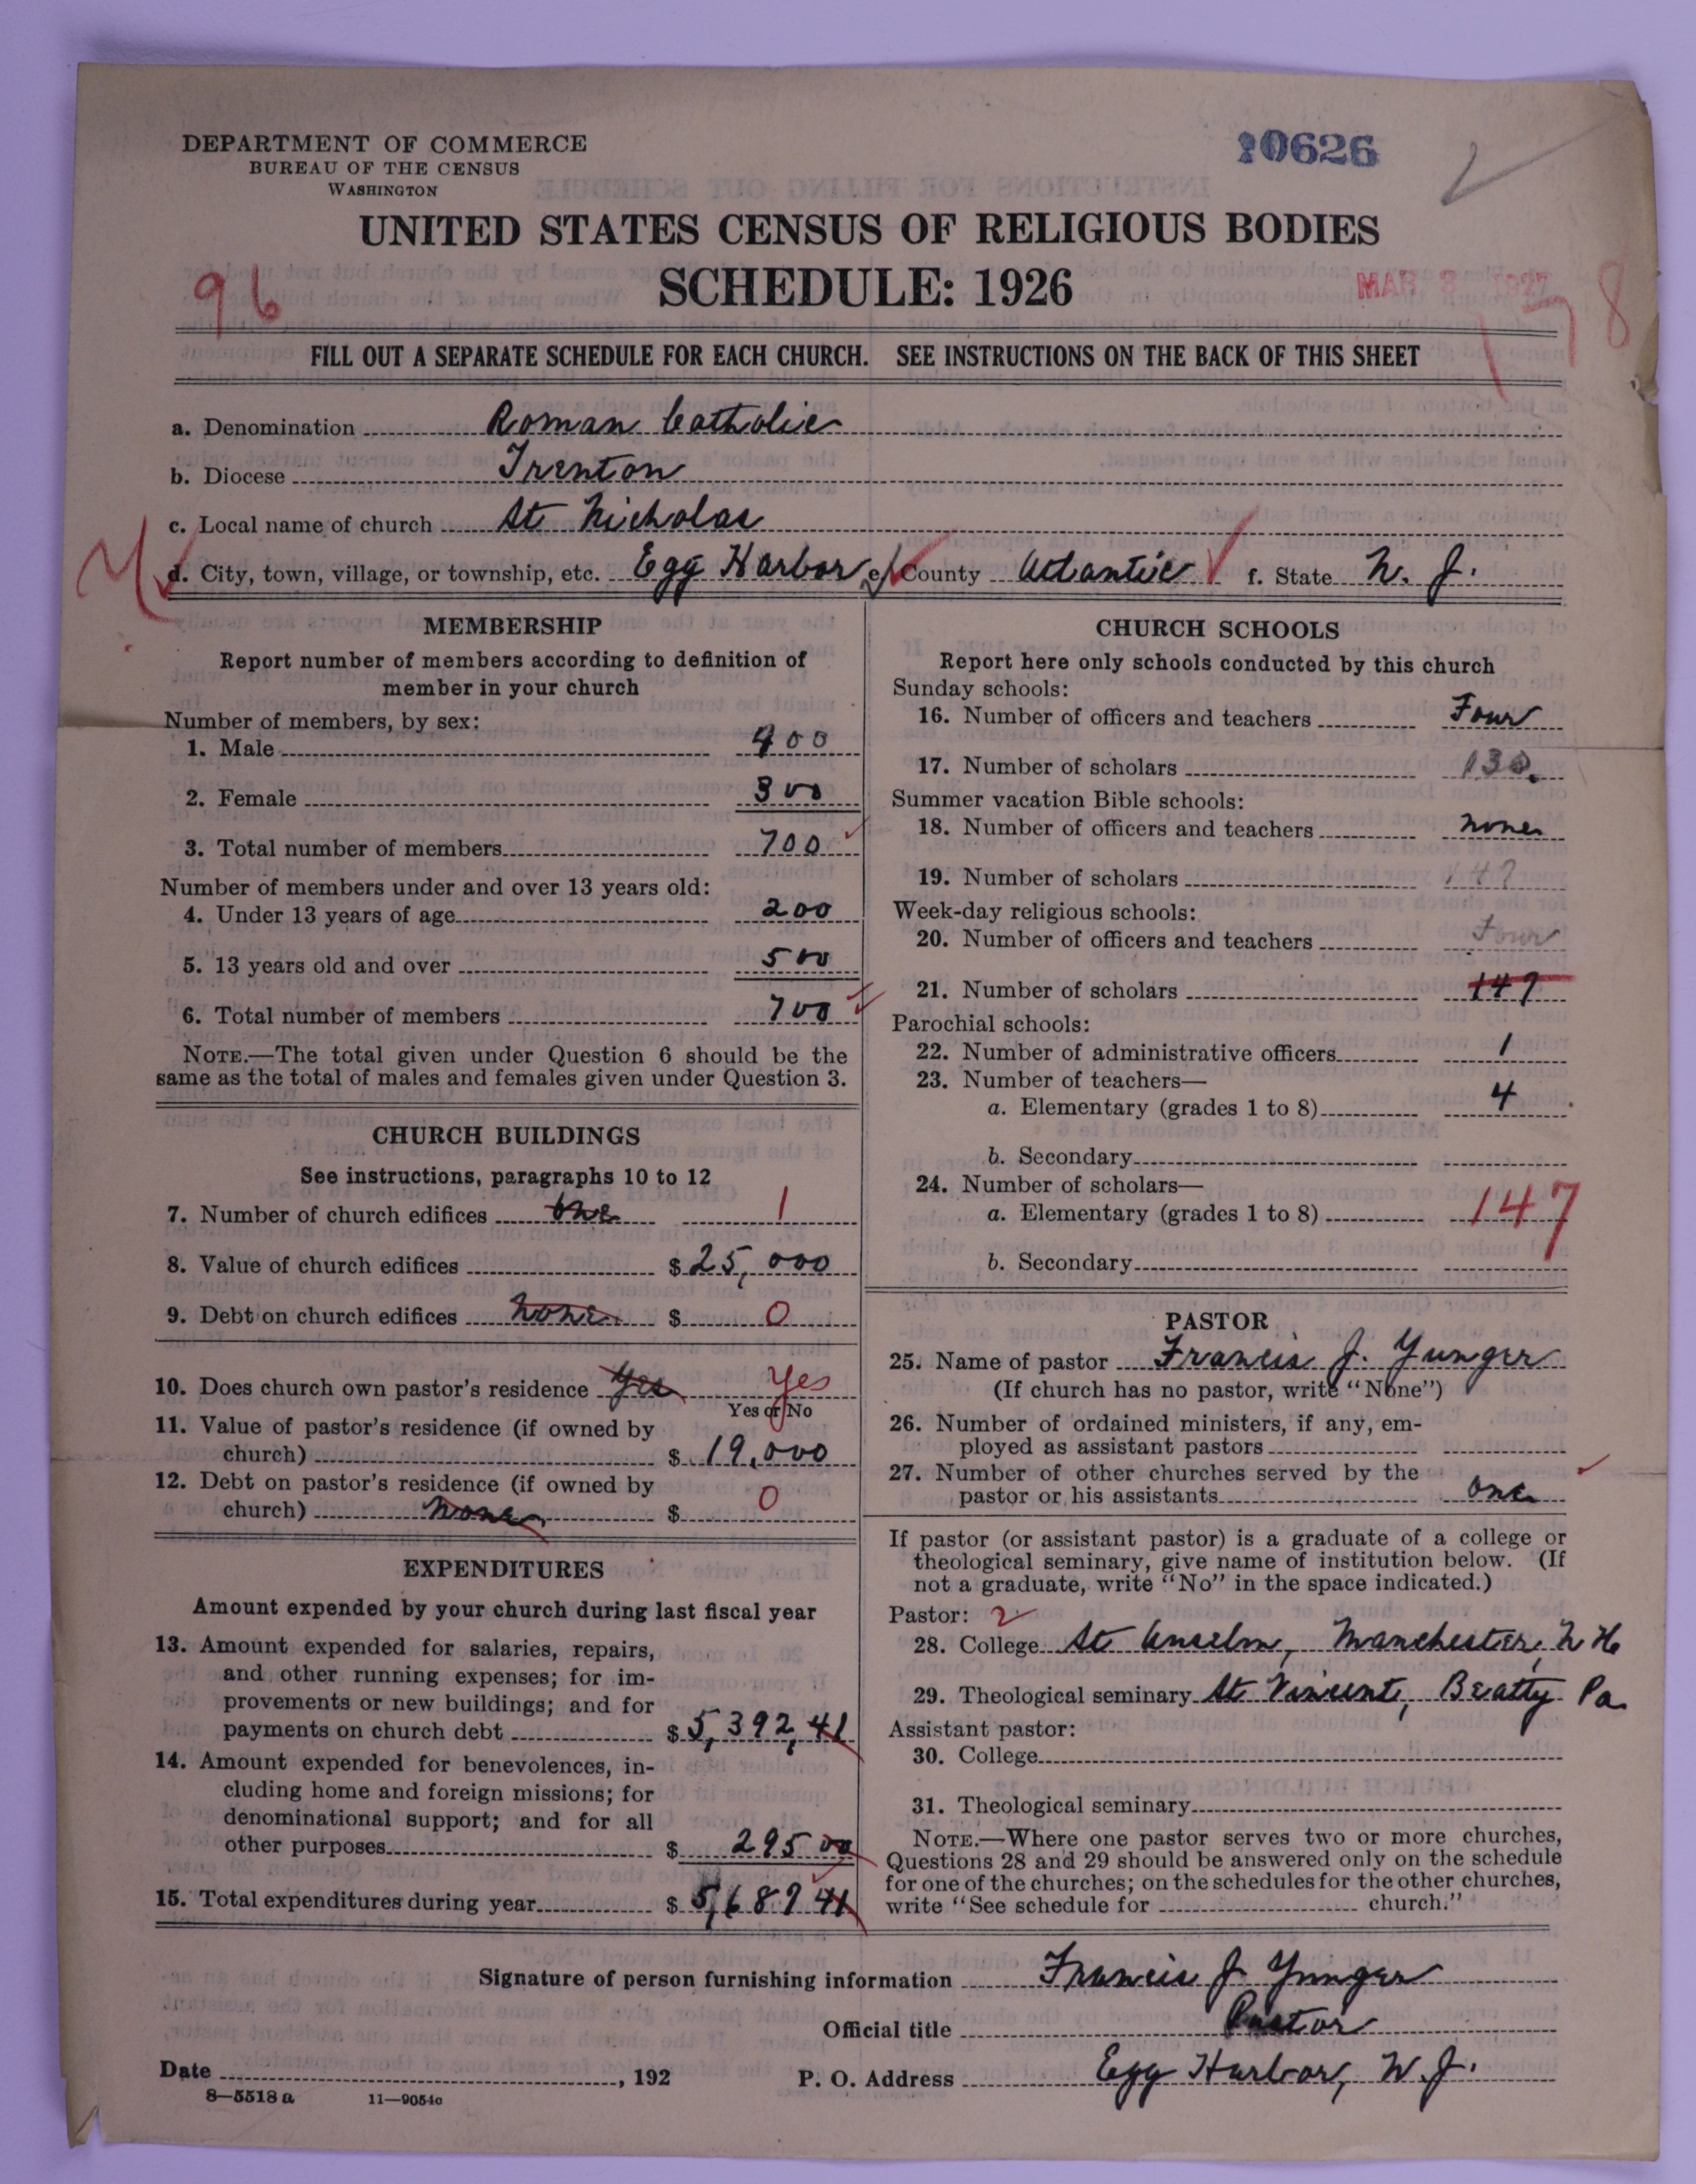 DEPARTMENT OF COMMERCE
BUREAU OF THE CENSUS
WASHINGTON
10626
UNITED STATES CENSUS OF RELIGIOUS BODIES
SCHEDULE: 1926
96
MAR 8 1927
178
FILL OUT A SEPARATE SCHEDULE FOR EACH CHURCH. SEE INSTRUCTIONS ON THE BACK OF THIS SHEET
a. Denomination Roman Catholic
b. Diocese Trenton
c. Local name of church St Nicholas
d. City, town, village, or township, etc. Egg Harbor e. County Atlantic f. State N. J.
MEMBERSHIP
Report number of members according to definition of
member in your church
Number of members, by sex:
1. Male 400
2. Female 300
3. Total number of members 700
Number of members under and over 13 years old:
4. Under 13 years of age 200
5. 13 years old and over 500
6. Total number of members 700
NOTE.—The total given under Question 6 should be the
same as the total of males and females given under Question 3.
CHURCH BUILDINGS
See instructions, paragraphs 10 to 12
7. Number of church edifices one 1
8. Value of church edifices $25,000
9. Debt on church edifices none $ 0
10. Does church own pastor's residence Yes Yes
Yes or No
11. Value of pastor's residence (if owned by
church) $ 19,000
12. Debt on pastor's residence (if owned by
church) none $ 0
EXPENDITURES
Amount expended by your church during last fiscal year
13. Amount expended for salaries, repairs,
and other running expenses; for im-
provements or new buildings; and for
payments on church debt $5,392,41
14. Amount expended for benevolences, in-
cluding home and foreign missions; for
denominational support; and for all
other purposes $ 295 00
15. Total expenditures during year $5,687 41
CHURCH SCHOOLS
Report here only schools conducted by this church
Sunday schools:
16. Number of officers and teachers Four
17. Number of scholars 130.
Summer vacation Bible schools:
18. Number of officers and teachers none
19. Number of scholars 147
Week-day religious schools:
20. Number of officers and teachers Four
21. Number of scholars 147
Parochial schools:
22. Number of administrative officers 1
23. Number of teachers—
a. Elementary (grades 1 to 8) 4
b. Secondary
24. Number of scholars—
a. Elementary (grades 1 to 8) 147
b. Secondary
PASTOR
25. Name of pastor Francis J. Yunger
(If church has no pastor, write "None")
26. Number of ordained ministers, if any, em-
ployed as assistant pastors
27. Number of other churches served by the
pastor or his assistants one
If pastor (or assistant pastor) is a graduate of a college or
theological seminary, give name of institution below. (If
not a graduate, write "No" in the space indicated.)
Pastor: 2
28. College St Anselm, Manchester, N H
29. Theological seminary St Vincent, Beatty Pa
Assistant pastor:
30. College
31. Theological seminary
NOTE.—Where one pastor serves two or more churches,
Questions 28 and 29 should be answered only on the schedule
for one of the churches; on the schedules for the other churches,
write "See schedule for church."
Signature of person furnishing information Francis J Yunger
Official title Pastor
Date , 192 P. O. Address Egg Harbor, N. J.
8—5518 a 11—9054c